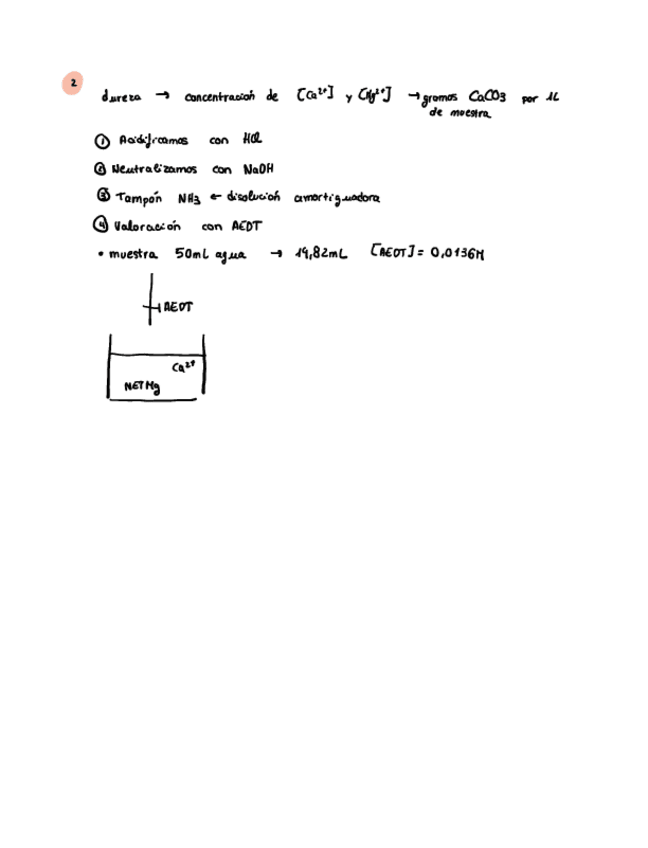 2
dureza → concentración de [Ca²⁺] y [Mg²⁺] → gramos CaCO3 por 1L
de muestra
① Acidificamos con HCl
② Neutralizamos con NaOH
③ Tampón NH3 ← disolución amortiguadora
④ Valoración con AEDT
• muestra 50mL agua → 14,82mL [AEDT] = 0,0136M
AEDT
Ca²⁺
NETMg